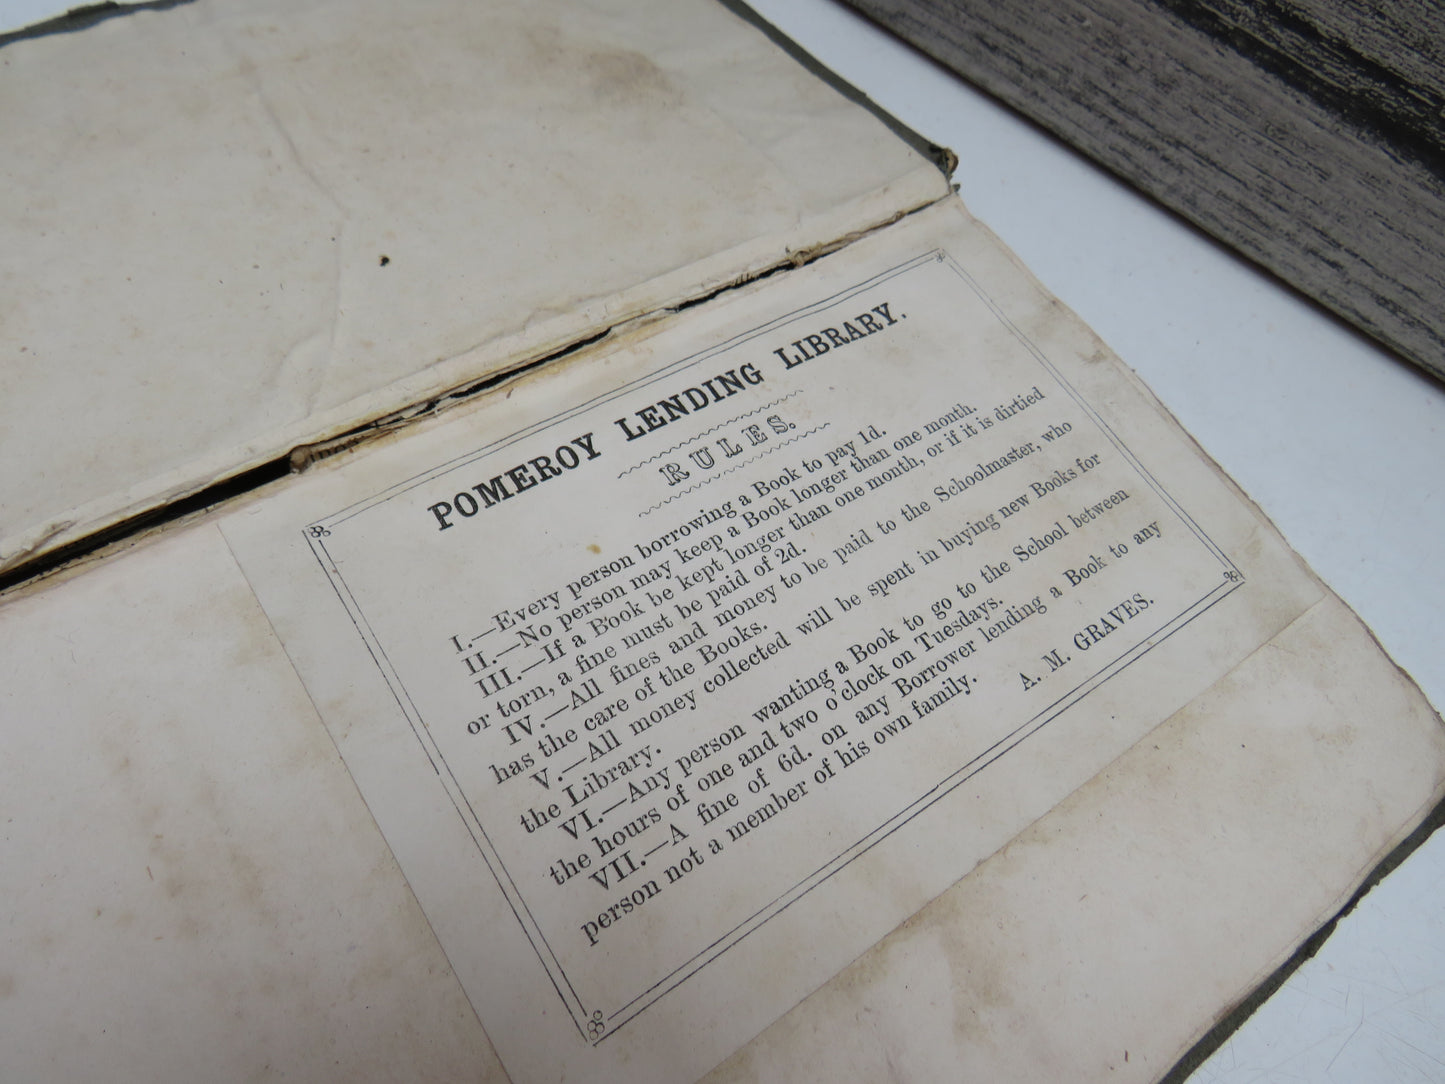 POMEROY LENDING LIBRARY.
RULES.
I.—Every person borrowing a Book to pay 1d.
II.—No person may keep a Book longer than one month.
III.—If a Book be kept longer than one month, or if it is dirtied
or torn, a fine must be paid of 2d.
IV.—All fines and money to be paid to the Schoolmaster, who
has the care of the Books.
V.—All money collected will be spent in buying new Books for
the Library.
VI.—Any person wanting a Book to go to the School between
the hours of one and two o'clock on Tuesdays.
VII.—A fine of 6d. on any Borrower lending a Book to any
person not a member of his own family.
A. M. GRAVES.